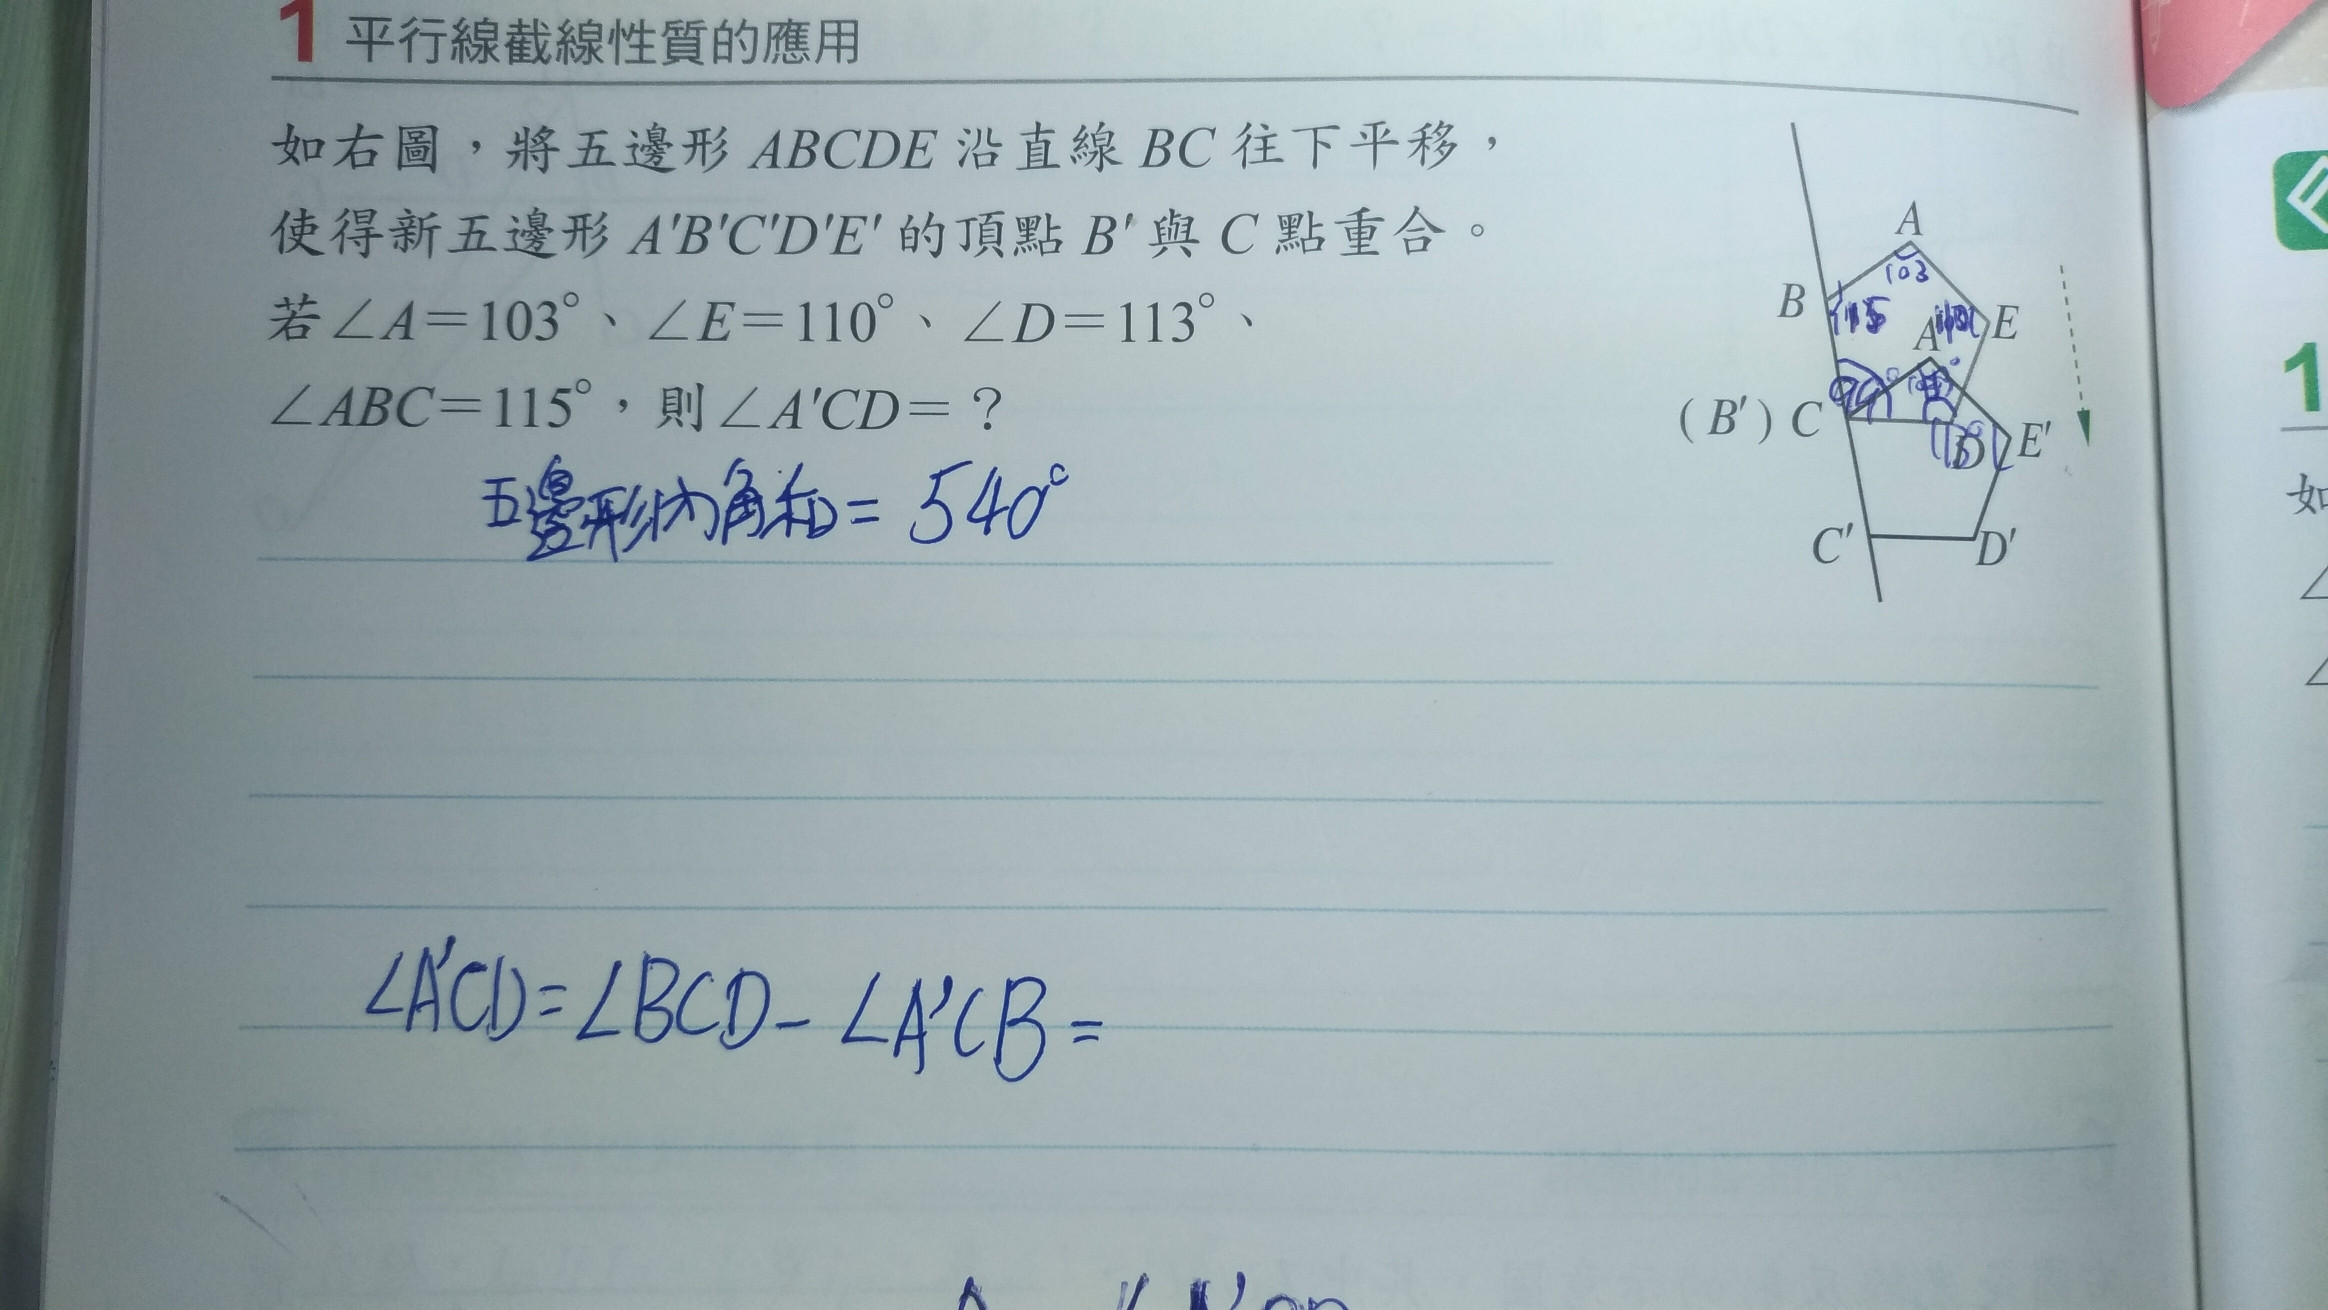 1 平行線截線性質的應用
如右圖，將五邊形 ABCDE 沿直線 BC 往下平移，
使得新五邊形 A'B'C'D'E' 的頂點 B' 與 C 點重合。
若∠A＝103°、∠E＝110°、∠D＝113°、
∠ABC＝115°，則∠A'CD＝？
五邊形內角和= 540°
∠A'CD=∠BCD-∠A'CB=
A
103
B
115
E
A'
(B') C
D
E'
C'
D'
1
如
∠
∠